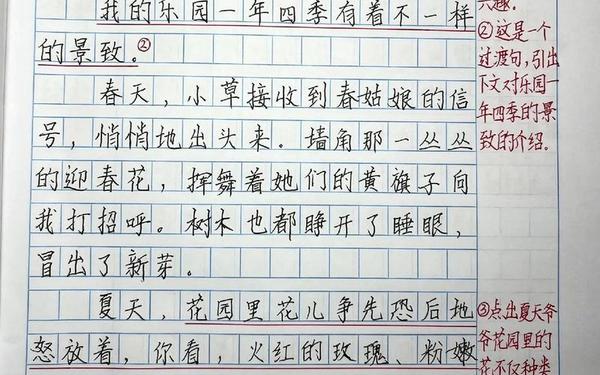 我的乐园一年四季有着不一样
的景致。②
春天，小草接收到春姑娘的信
号，悄悄地出头来。墙角那一丛丛
的迎春花，挥舞着她们的黄旗子向
我打招呼。树木也都睁开了睡眼，
冒出了新芽。
夏天，花园里花儿争先恐后地
怒放着，你看，火红的玫瑰、粉嫩
兴趣.
②这是一个
过渡句，引出
下文对乐园一
年四季的景
致的介绍。
③点出夏天爷
爷花园里的
花不仅种类